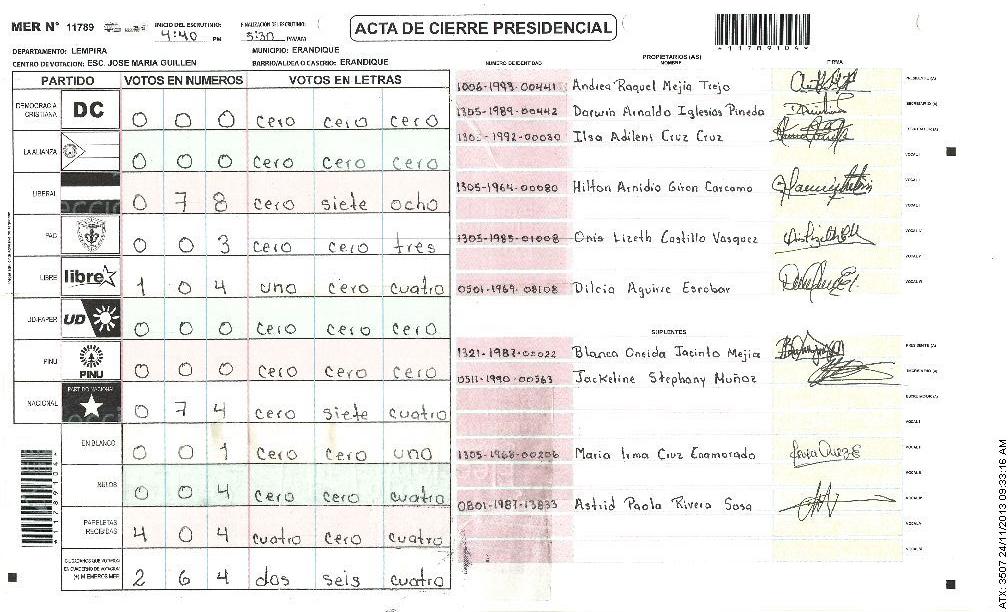 MER N° 11789 INICIO DEL ESCRUTINIO: 4:40 PM FINALIZACION DEL ESCRUTINIO: 5:30 PM/AM ACTA DE CIERRE PRESIDENCIAL
DEPARTAMENTO: LEMPIRA MUNICIPIO: ERANDIQUE
CENTRO DE VOTACION: ESC. JOSE MARIA GUILLEN BARRIO/ALDEA O CASERIO: ERANDIQUE
PARTIDO VOTOS EN NUMEROS VOTOS EN LETRAS
DEMOCRACIA CRISTIANA DC 0 0 0 cero cero cero
LA ALIANZA 0 0 0 cero cero cero
LIBERAL 0 7 8 cero siete ocho
PAC 0 0 3 cero cero tres
LIBRE libre 1 0 4 uno cero cuatro
UD/FAPER UD 0 0 0 cero cero cero
PINU PINU 0 0 0 cero cero cero
NACIONAL PARTIDO NACIONAL 0 7 4 cero siete cuatro
EN BLANCO 0 0 1 cero cero uno
NULOS 0 0 4 cero cero cuatro
PAPELETAS RECIBIDAS 4 0 4 cuatro cero cuatro
CIUDADANOS QUE VOTARON EN CUADERNO DE VOTACION (+) MIEMBROS MER 2 6 4 dos seis cuatro
PROPIETARIOS (AS)
NUMERO DE IDENTIDAD NOMBRES FIRMA
1006-1993-00441 Andrea Raquel Mejia Trejo PRESIDENTE (A)
1305-1989-00442 Darwin Arnaldo Iglesias Pineda SECRETARIO (A)
Ilsa Adilens Cruz Cruz
VOCAL I
1305-1964-00080 Hilton Arnidio Giron Carcamo
1305-1985-01008 Onis Lizeth Castillo Vasquez
0501-1969-08108 Dilcia Aguirre Escobar
SUPLENTES
1321-1987-00022 Blanca Oneida Jacinto Mejia PRESIDENTE (A)
0511-1990-00563 Jackeline Stephany Muñoz SECRETARIO (A)
ESCRUTADOR (A)
VOCAL I
1305-1968-00206 Maria Irma Cruz Enamorado
0801-1987-13833 Astrid Paola Rivera Sosa
11789104
ATX: 3507 24/11/2013 09:33:16 AM